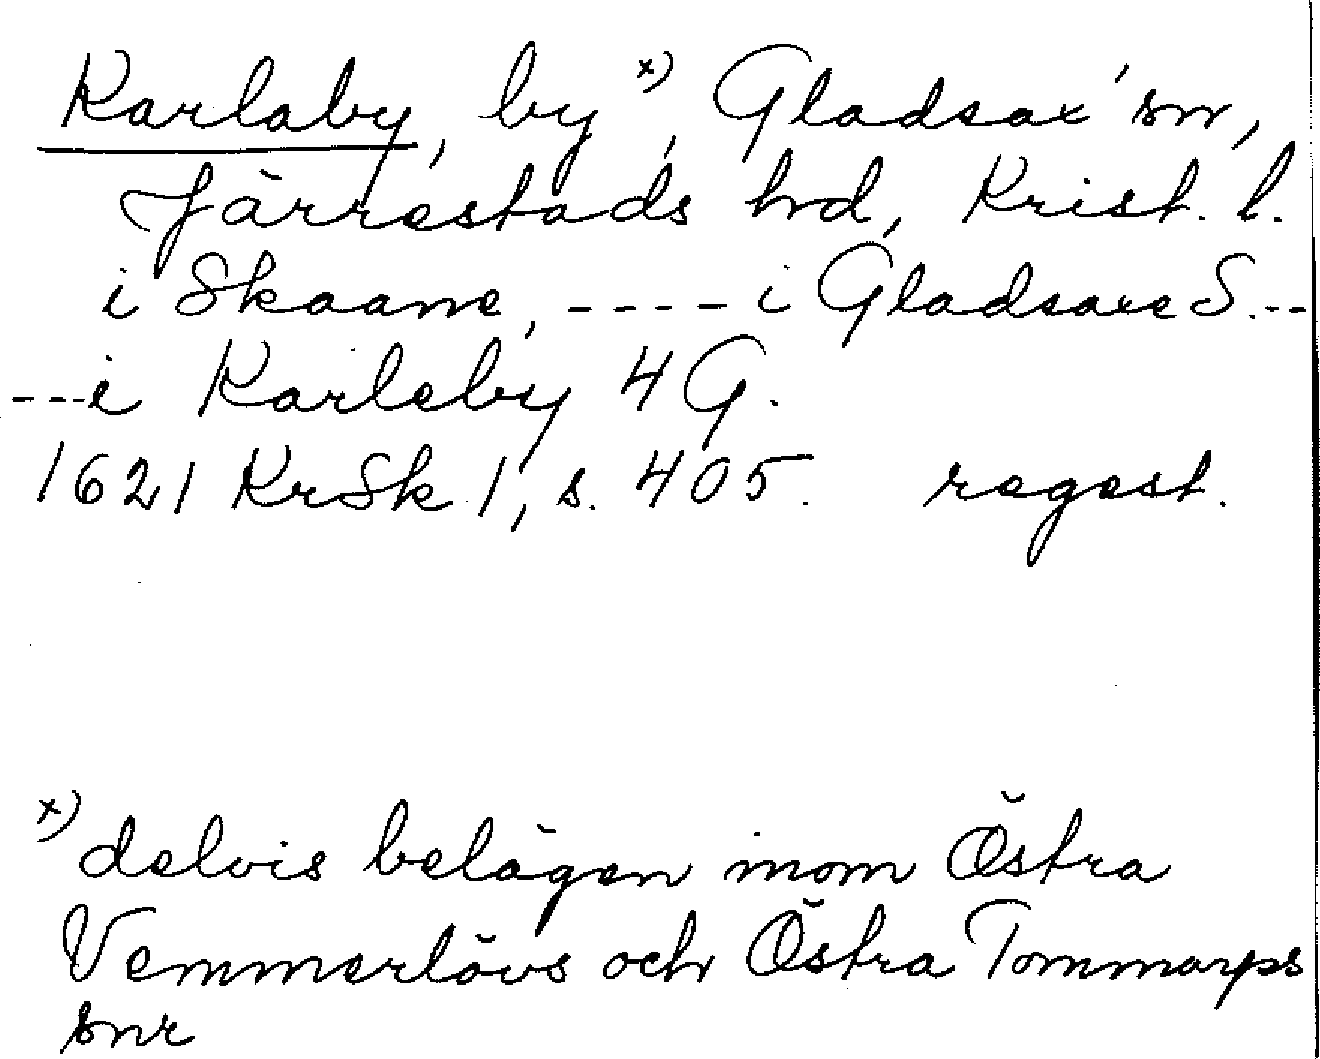 Karlaby, by x), Gladsax' sn,
Järrestads hd, Krist. l.
i Skaane, ---- i Gladsaxe S.--
---i Karleby 4 G.
1621 KrSk 1, s. 405. regest.
x) delvis belägen inom Östra
Vemmerlövs och Östra Tommarps
snr